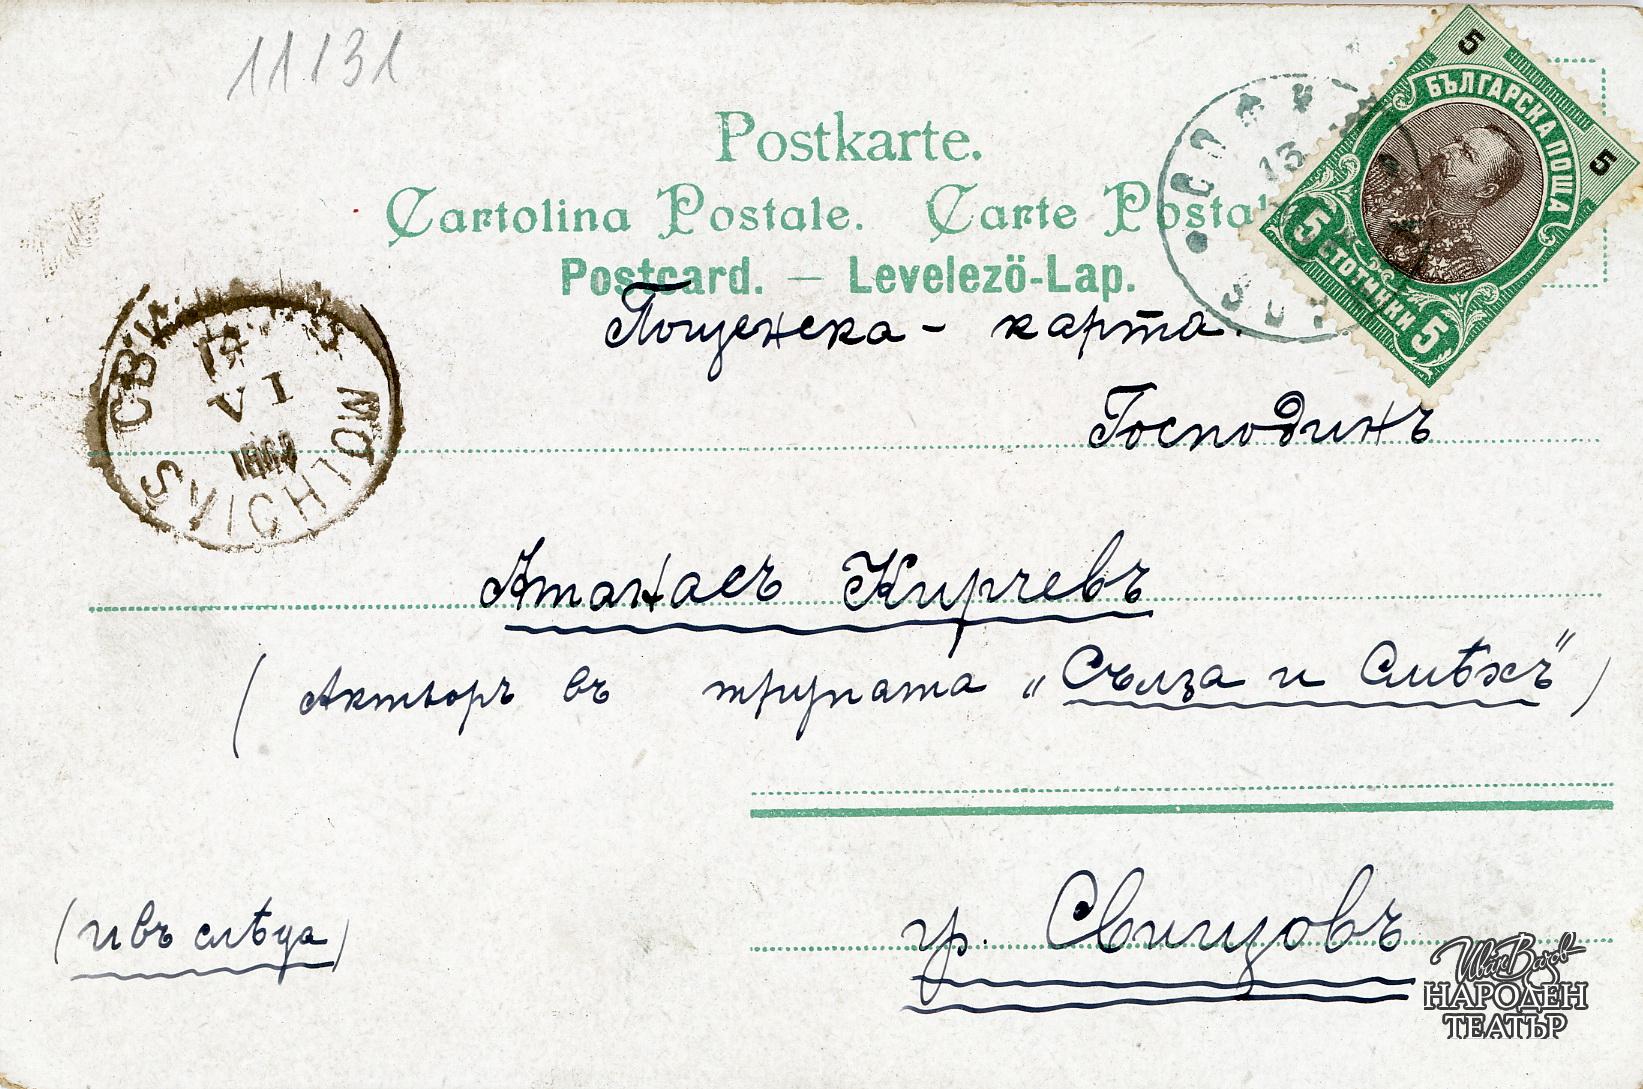 11131
Postkarte.
Cartolina Postale. Carte Postal
Postcard. — Levelezö-Lap.
5 БЪЛГАРСКА ПОЩА 5
5 СТОТИНКИ 5
13
Пощенска - карта.
Господинъ
VI
SVICHTOW
Атанасъ Кирчевъ
(Актьоръ въ трупата „Сълза и Смѣхъ")
гр. Свищовъ
(и въ слѣда)
Иван Вазов
НАРОДЕН
ТЕАТЪР